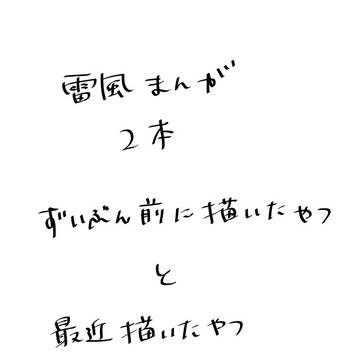 雷風まんが
2本
ずいぶん前に描いたやつ
と
最近描いたやつ